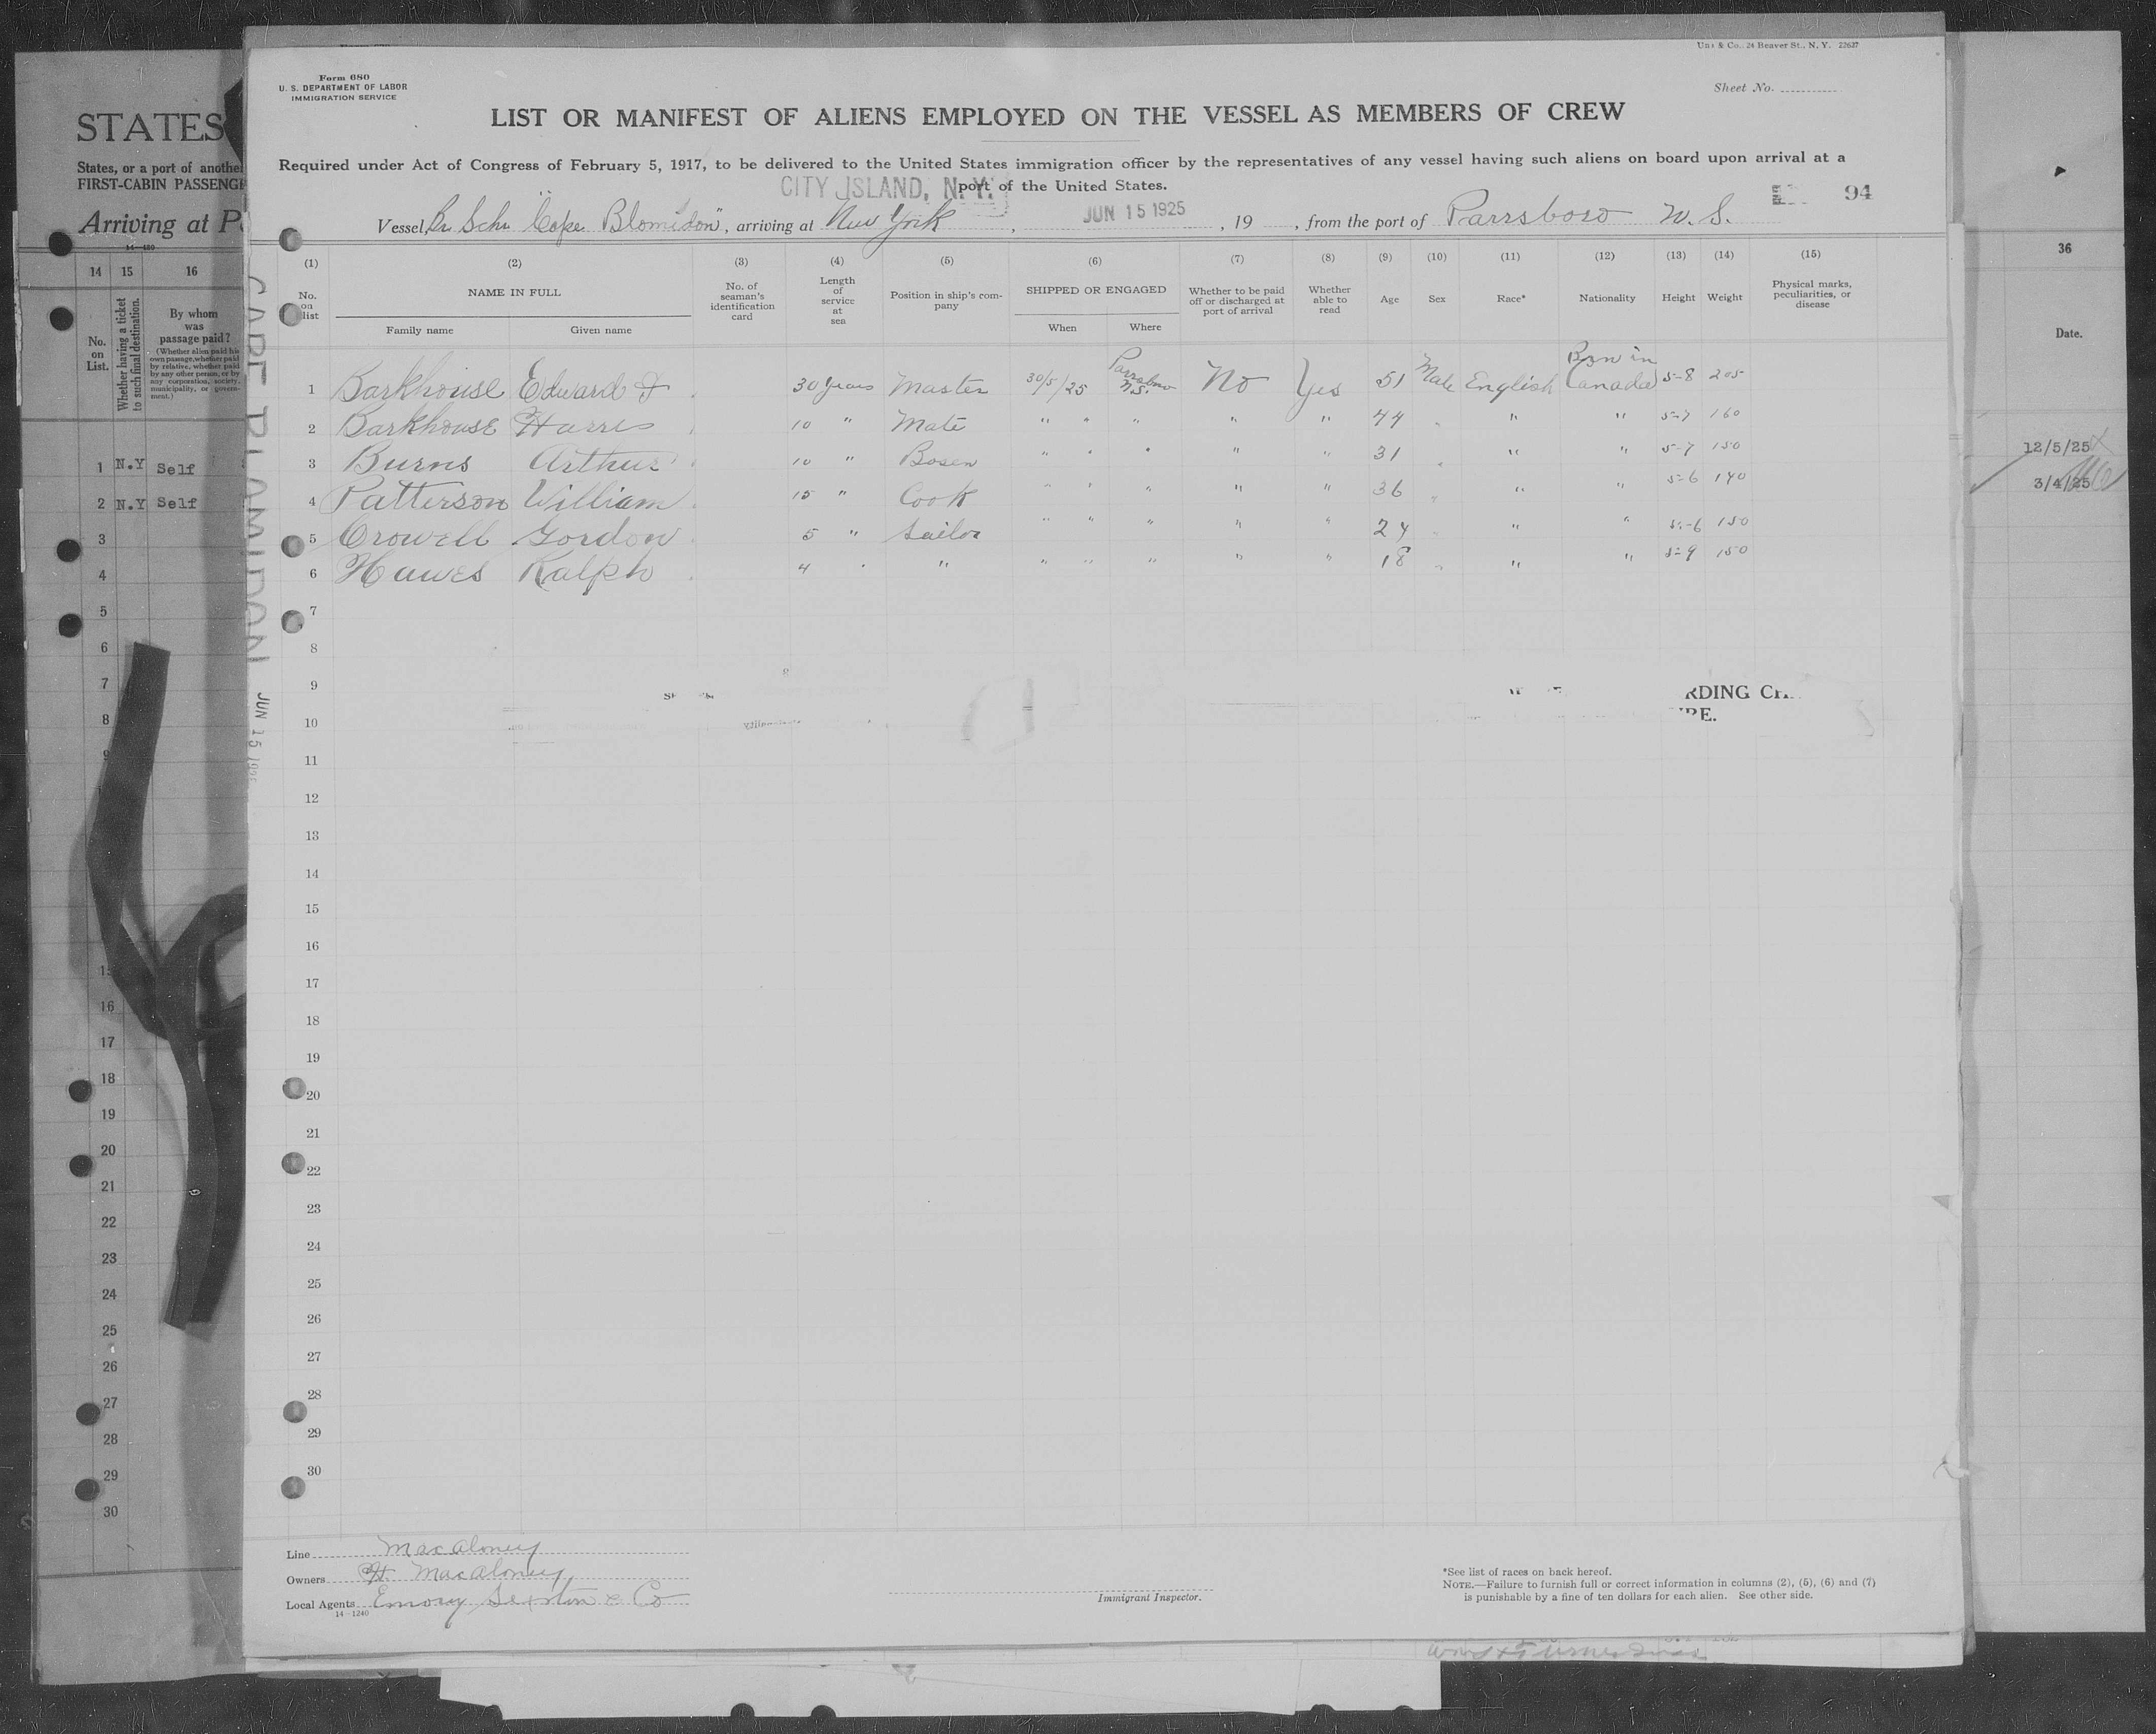 Uns & Co., 24 Beaver St., N. Y. 22627
Form 680
U. S. DEPARTMENT OF LABOR
IMMIGRATION SERVICE
Sheet No.
LIST OR MANIFEST OF ALIENS EMPLOYED ON THE VESSEL AS MEMBERS OF CREW
Required under Act of Congress of February 5, 1917, to be delivered to the United States immigration officer by the representatives of any vessel having such aliens on board upon arrival at a
port of the United States.
CITY ISLAND, N. Y.
94
Vessel, Br. Schr "Cape Blomidon", arriving at New York, JUN 15 1925, 19 , from the port of Parrsboro N. S.
(1) (2) (3) (4) (5) (6) (7) (8) (9) (10) (11) (12) (13) (14) (15)
No. on list NAME IN FULL Family name Given name No. of seaman's identification card Length of service at sea Position in ship's company SHIPPED OR ENGAGED When Where Whether to be paid off or discharged at port of arrival Whether able to read Age Sex Race* Nationality Height Weight Physical marks, peculiarities, or disease
1 Barkhouse Edward 30 years Master 30/5/25 Parrsboro N.S. No Yes 51 Male English Born in Canada 5-8 205
2 Barkhouse Harris 10 " Mate " " " " " 44 " " " 5-7 160
3 Burns Arthur 10 " Bosen " " " " " 31 " " " 5-7 150
4 Patterson William 15 " Cook " " " " " 36 " " " 5-6 140
5 Crowell Gordon 5 " Sailor " " " " " 24 " " " 5-6 150
6 Hawes Ralph 4 " " " " " " " 18 " " " 5-9 150
7
8
9
10
11
12
13
14
15
16
17
18
19
20
21
22
23
24
25
26
27
28
29
30
RDING
CAPE BLAMIDON
JUN 15
Line Macaloney
Owners H. Macaloney
Local Agents Emory Sexton & Co
14-1240
Immigrant Inspector.
*See list of races on back hereof.
NOTE.—Failure to furnish full or correct information in columns (2), (5), (6) and (7)
is punishable by a fine of ten dollars for each alien. See other side.
STATES
States, or a port of another
FIRST-CABIN
Arriving at
14—480
14 15 16
No. on List.
Whether having a ticket to such final destination.
By whom was passage paid?
(Whether alien paid his own passage, whether paid by relative, whether paid by any other person, or by any corporation, society, municipality, or government.)
1 N.Y Self
2 N.Y Self
3
4
5
6
7
8
16
17
18
19
20
21
22
23
24
25
26
27
28
29
30
36
Date.
12/5/25
3/4/25